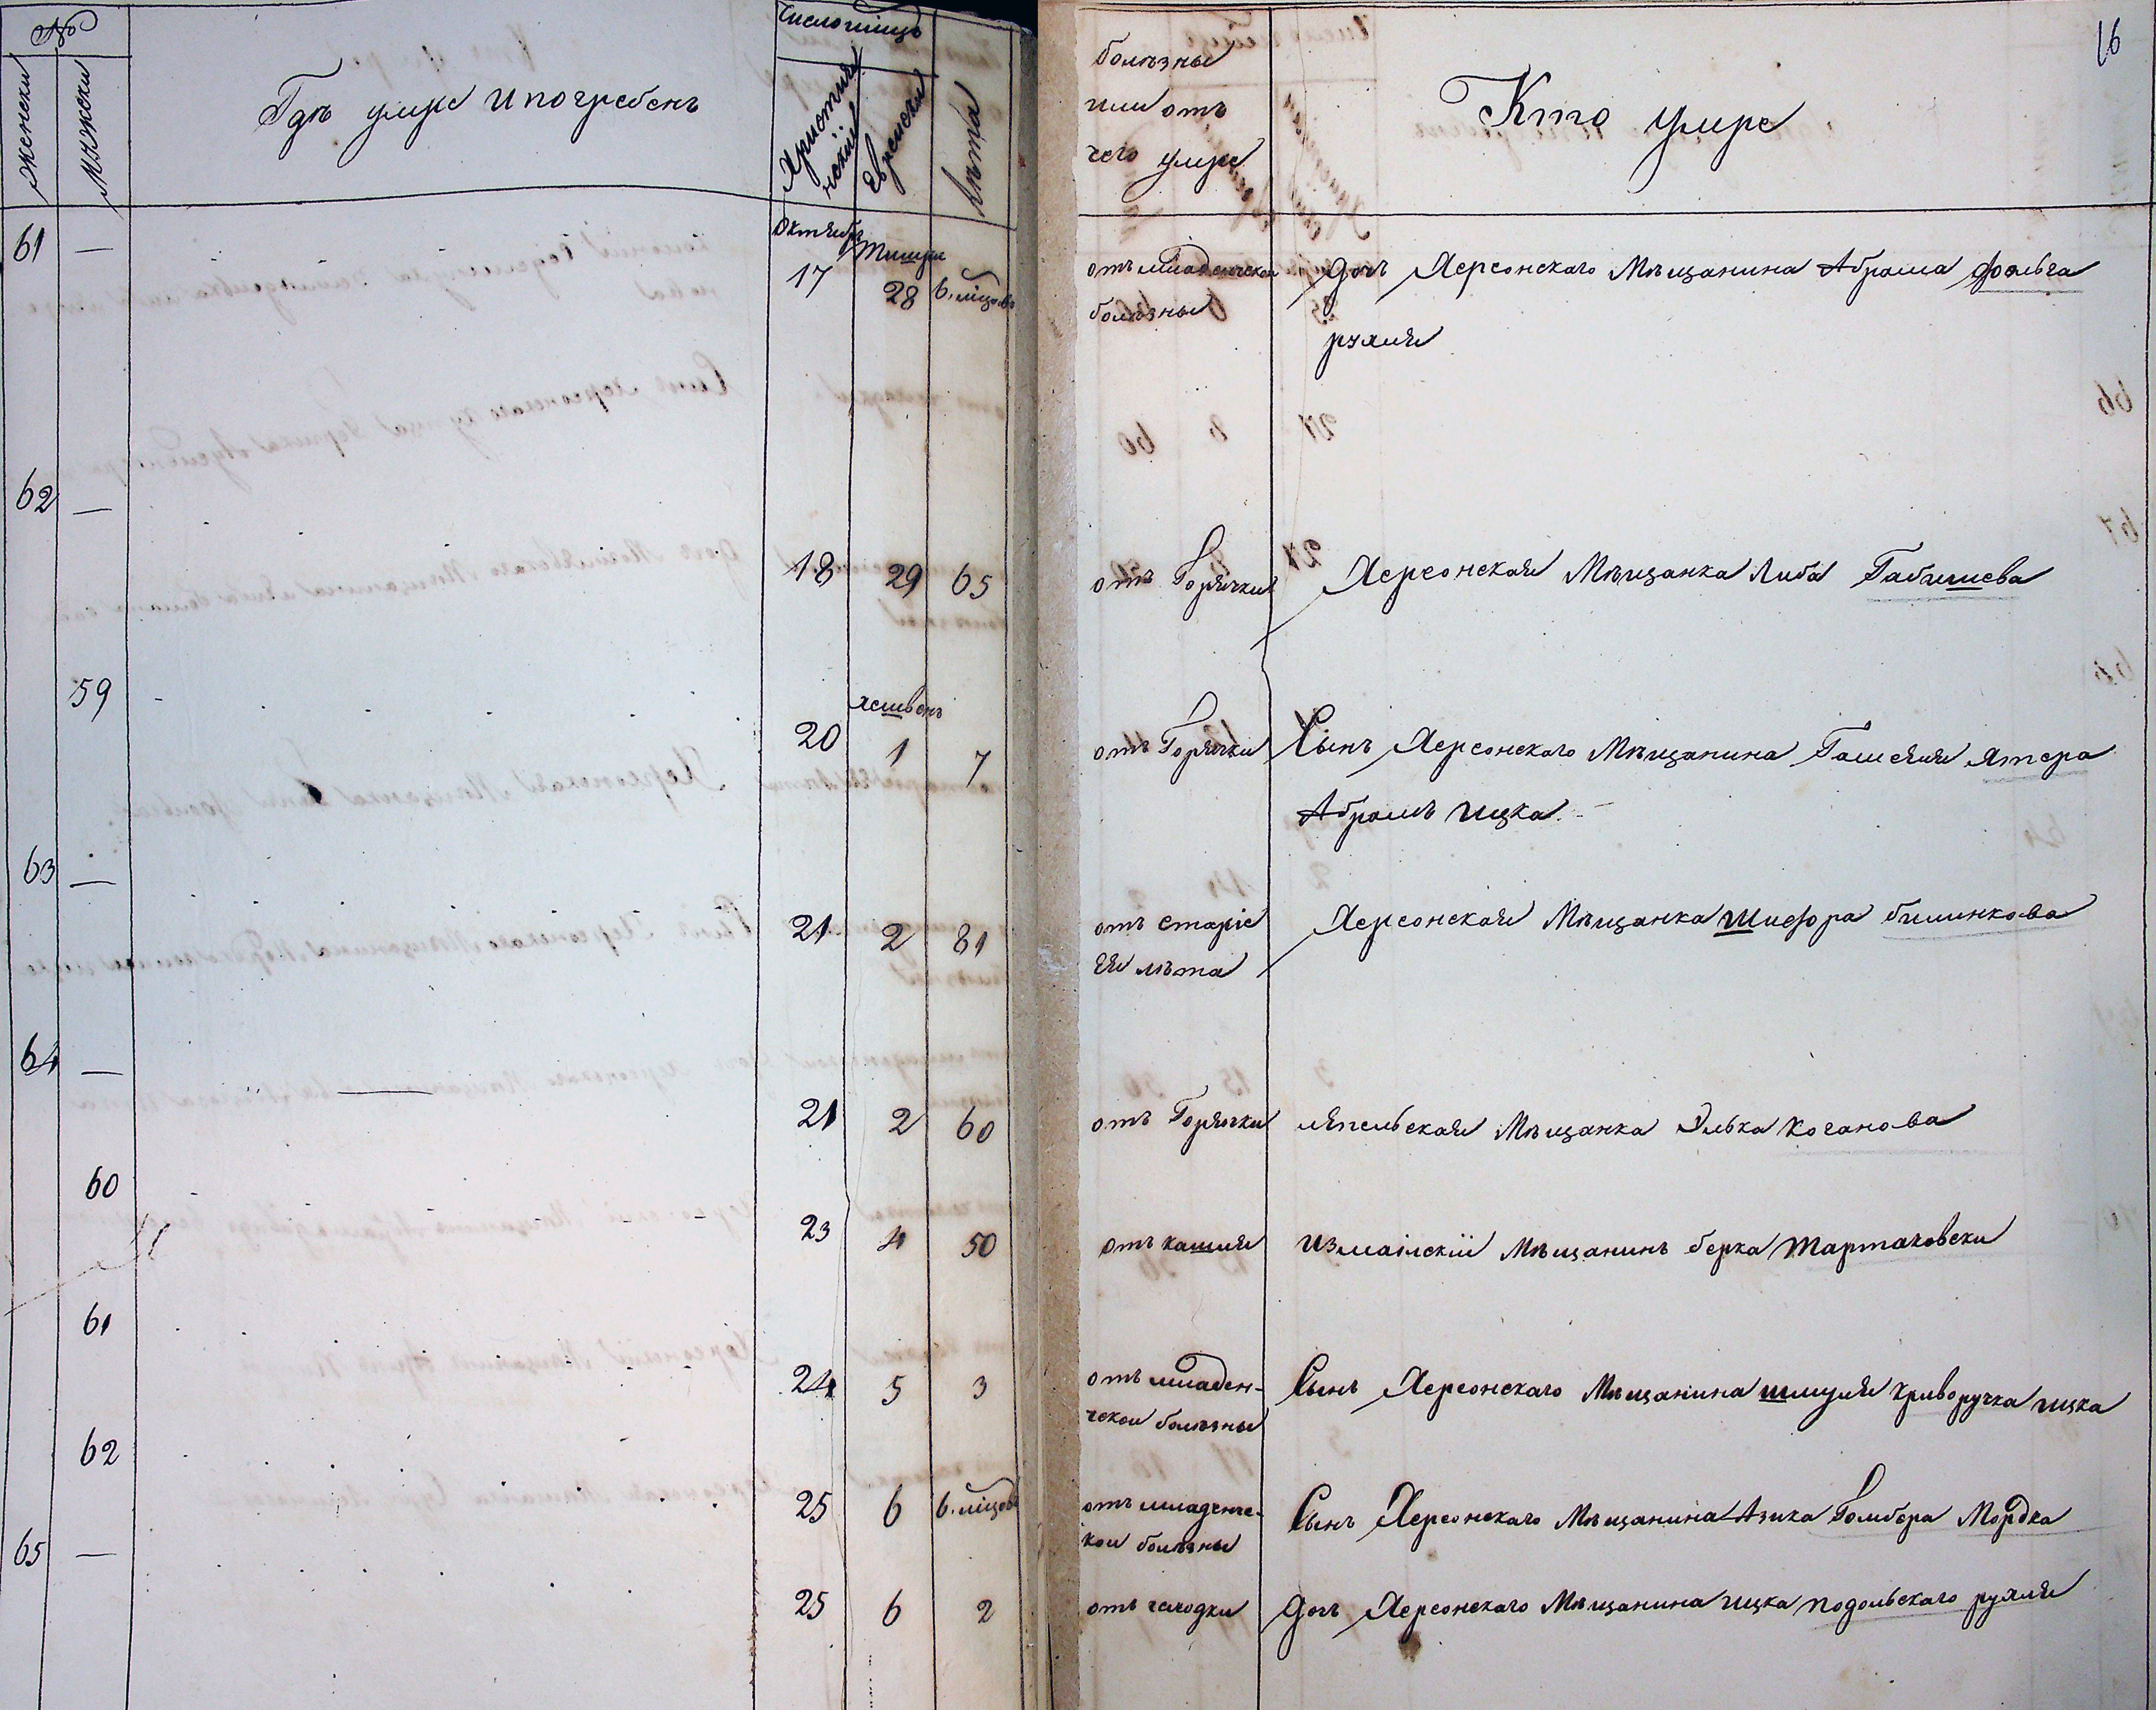 №
женски
мужески
Гдѣ умре и погребенъ
Число мѣсцъ
Християн
ский
Еврейски
лѣта
болѣзны
или отъ
чего умре
Кто умре
16
61 —
Октябр
Тишри
17 28 6. міцовъ
отъ младенческои
болѣзны
дочь Херсонскаго Мѣщанина Абрама фоельга
рухля
62 —
18 29 65
отъ Горячки
Херсонская Мѣщанка Либа Габишева
59
хешвенъ
20 1 7
отъ Горячки
Сынъ Херсонскаго Мѣщанина Ятера
Абрамъ ицка
63 —
21 2 81
отъ старіе
ея лѣта
Херсонская Мѣщанка Шифра билинкова
64 —
21 2 60
отъ Горячки
Мѣщанка Элька коганова
60
23 4 50
отъ кашля
Измаілскіи Мѣщанинъ берка Тартаковски
61
24 5 3
отъ младен-
ческои болѣзны
Сынъ Херсонскаго Мѣщанина шмуля криворучка ицка
62
25 6 6. міцовъ
отъ младенче-
кои болѣзны
Сынъ Херсонскаго Мѣщанина Азика Гомбера Мордка
65 —
25 6 2
отъ
дочь Херсонскаго Мѣщанина ицка подольскаго рухля